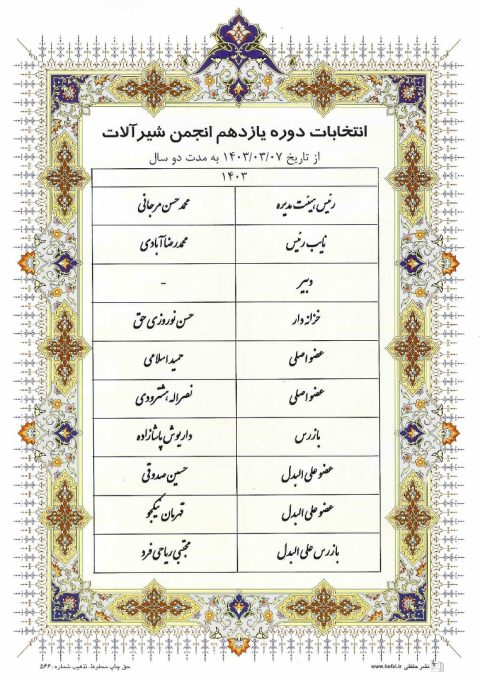 انتخابات دوره یازدهم انجمن شیرآلات
از تاریخ ۱۴۰۳/۰۳/۰۷ به مدت دو سال
۱۴۰۳
رئیس هیئت مدیره محمد حسن مرجانی
نایب رئیس محمدرضا آبادی
دبیر -
خزانه دار حسن نوروزی حق
عضو اصلی حمید اسلامی
عضو اصلی نصراله هشترودی
بازرس داریوش پاشازاده
عضو علی البدل حسین صدوقی
عضو علی البدل قهرمان نیکجو
بازرس علی البدل مجتبی ریاحی فرد
نشر حافظی www.hefzi.ir
حق چاپ محفوظ. تذهیب شماره: ۵۶۶